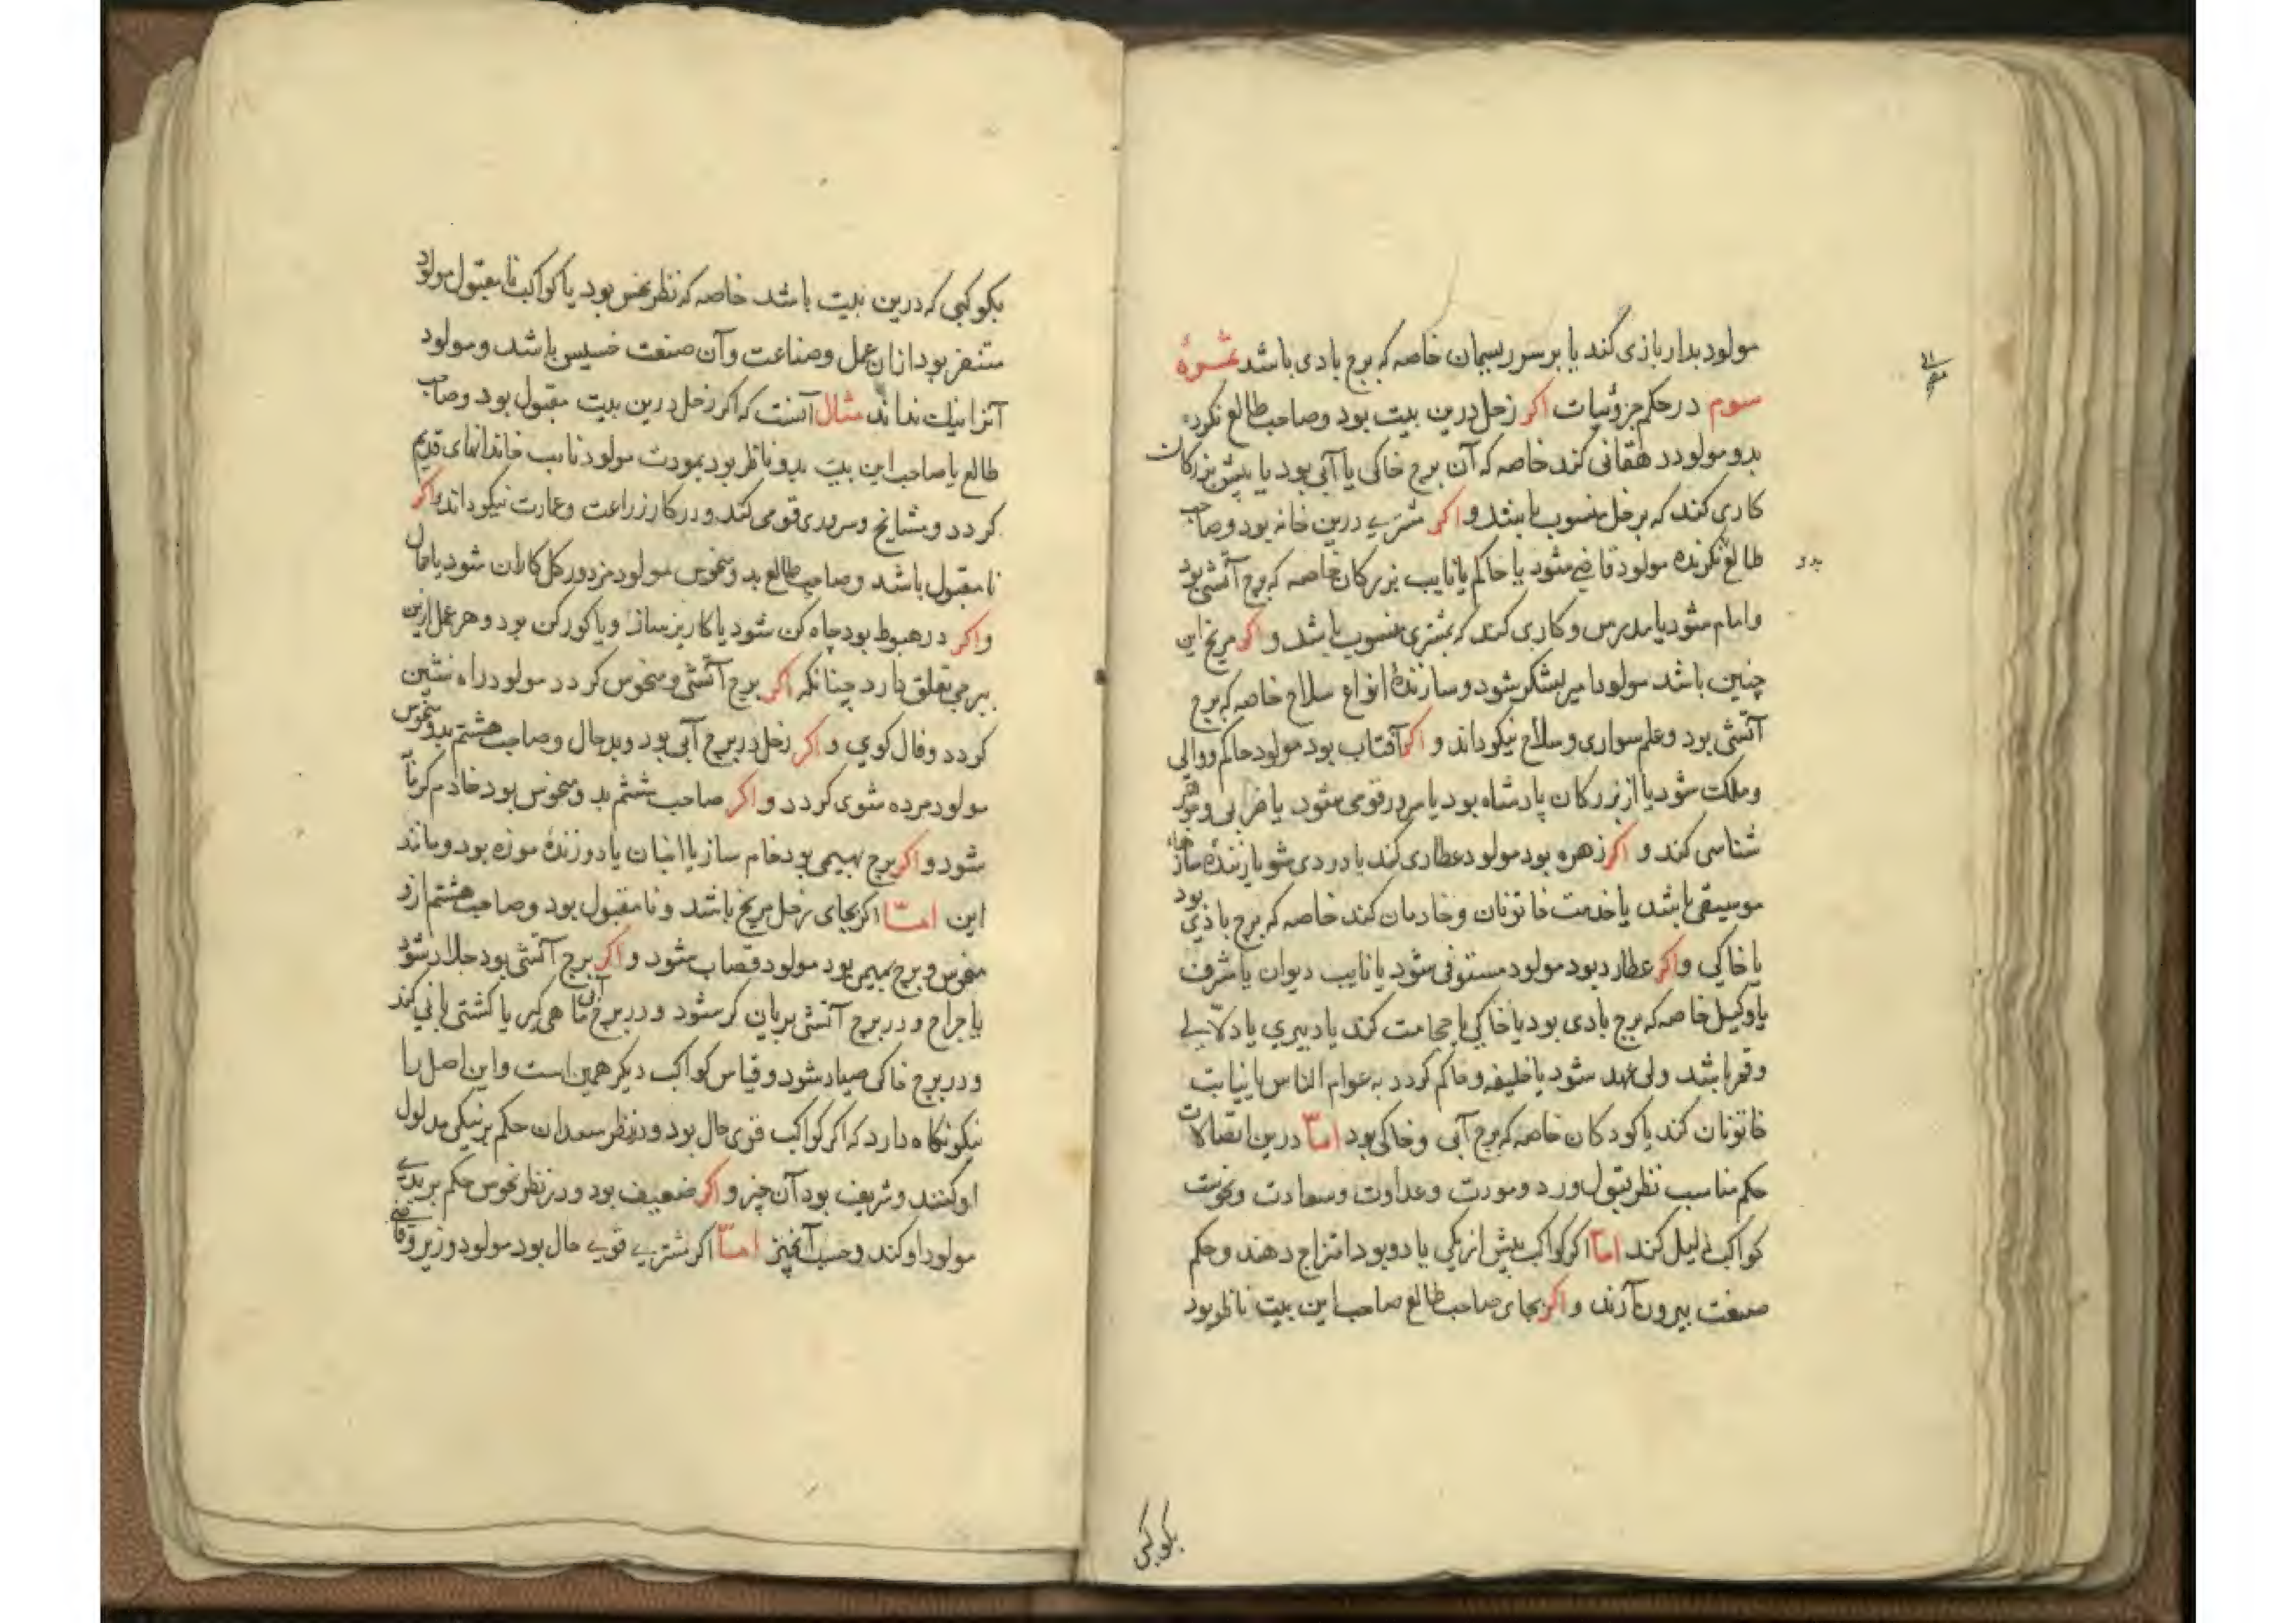 مولود بدار بازی کند یا بر سر ریسمان خاصه که برج بادی باشد ثمرهٔ
سوم در حکم جزوٴیات اکر زحل درین بیت بود وصاحب طالع نکرده
بدو مولود دهقانی کند خاصه که آن برج خاکی یا آبی بود یا پیش بزرکان
کاری کند که بزحل منسوب باشد و اکر مشتری درین خانه بود وصاحب
طالع نکرنده مولود قاضی شود یا حاکم یا نایب بزرکان خاصه که برج آتشی بود
بدو
وامام شود یا مدرس و کاری کند که بمشتری منسوب باشد و اکر مریخ این
چنین باشد مولود امیر لشکر شود وسازندهٔ انواع سلاح خاصه که برج
آتشی بود وعلم سواری وسلاح نیکو داند و اکر آفتاب بود مولود حاکم ووالی
وملکت شود یا از بزرکان پادشاه بود یا سرور قومی شود یا ضرابی وجوهر
شناسی کند و اکر زهره بود مولود عطاری کند یا دردی شو یا زنندهٔ سازهاء
موسیقی باشد یا خدمت خاتونان وخادمان کند خاصه که برج بادی بود
یا خاکی و اکر عطارد بود مولود مستوفی شود یا نایب دیوان یا مشرف
یا وکیل خاصه که برج بادی بود یا خاکی یا حجامت کند یا دبیری یا دلّالی
وقمر باشد ولی عهد شود یا خلیفه وحاکم کردد به عوام الناس یا نیابت
خاتونان کند یا کودکان خاصه که برج آبی وخاکی بود امّا درین اتصالات
حکم مناسب نظر قبول ورد ومودت وعداوت وسعادت ونحوست
کواکب دلیل کند امّا اکر کواکب بیش از یکی یا دو بود امتزاج دهند وحکم
صنعت بیرون آرند و اکر بجای صاحب طالع صاحب این بیت ناظر بود
بکوکبی
بکوکبی که درین بیت باشد خاصه که نظر نحس بود یا کواکب نامقبول مولود
متنفر بود ازان عمل وصناعت وآن صنعت خسیس باشد ومولود
آنرا نیک نداند مثال آنست که اکر زحل درین بیت مقبول بود وصاحب
طالع یا صاحب این بیت بدو ناظر بود بمودت مولود نایب خاندانهای قدیم
کردد ومشایخ وسروری قومی کند ودر کار زراعت وعمارت نیکو داند واکر
نامقبول باشد وصاحب طالع بد ومنحوس مولود مزدور کل کاران شود یا حمال
و اکر در هبوط بود چاه کن شود یا کاریز ساز ویا کورکن بود وهر عمل ازین
ببرجی تعلق دارد چنانکه اکر برج آتشی ومنحوس کردد مولود راه نشین
کردد وفال کوی و اکر زحل در برج آبی بود وبدحال وصاحب هشتم بدو منحوس
مولود مرده شوی کردد و اکر صاحب ششم بد ومنحوس بود خادم کرمابه
شود و اکر برج بهیمی بود خام ساز یا انبان یا دوزندهٔ موزه بود ومانند
این امّا اکر بجای زحل مریخ باشد ونامقبول بود وصاحب هشتم ازو
منحوس وبرج بهیمی بود مولود قصاب شود و اکر برج آتشی بود جلاد شود
یا جراح ودر برج آتشی بریان کر شود ودر برج آبی ماهی کیر یا کشتی بانی کند
ودر برج خاکی صیاد شود وقیاس کواکب دیکر همین است واین اصل را
نیکو نکاه دارد که اکر کواکب قوی حال بود ودر نظر سعدان حکم بر نیکی مدلول
او کنند وشریف بود آن چیز و اکر ضعیف بود ودر نظر نحوس حکم بر بدی
مولود او کند وخسیس آنچیز امّا اکر مشتری قوی حال بود مولود وزیر وقاضی